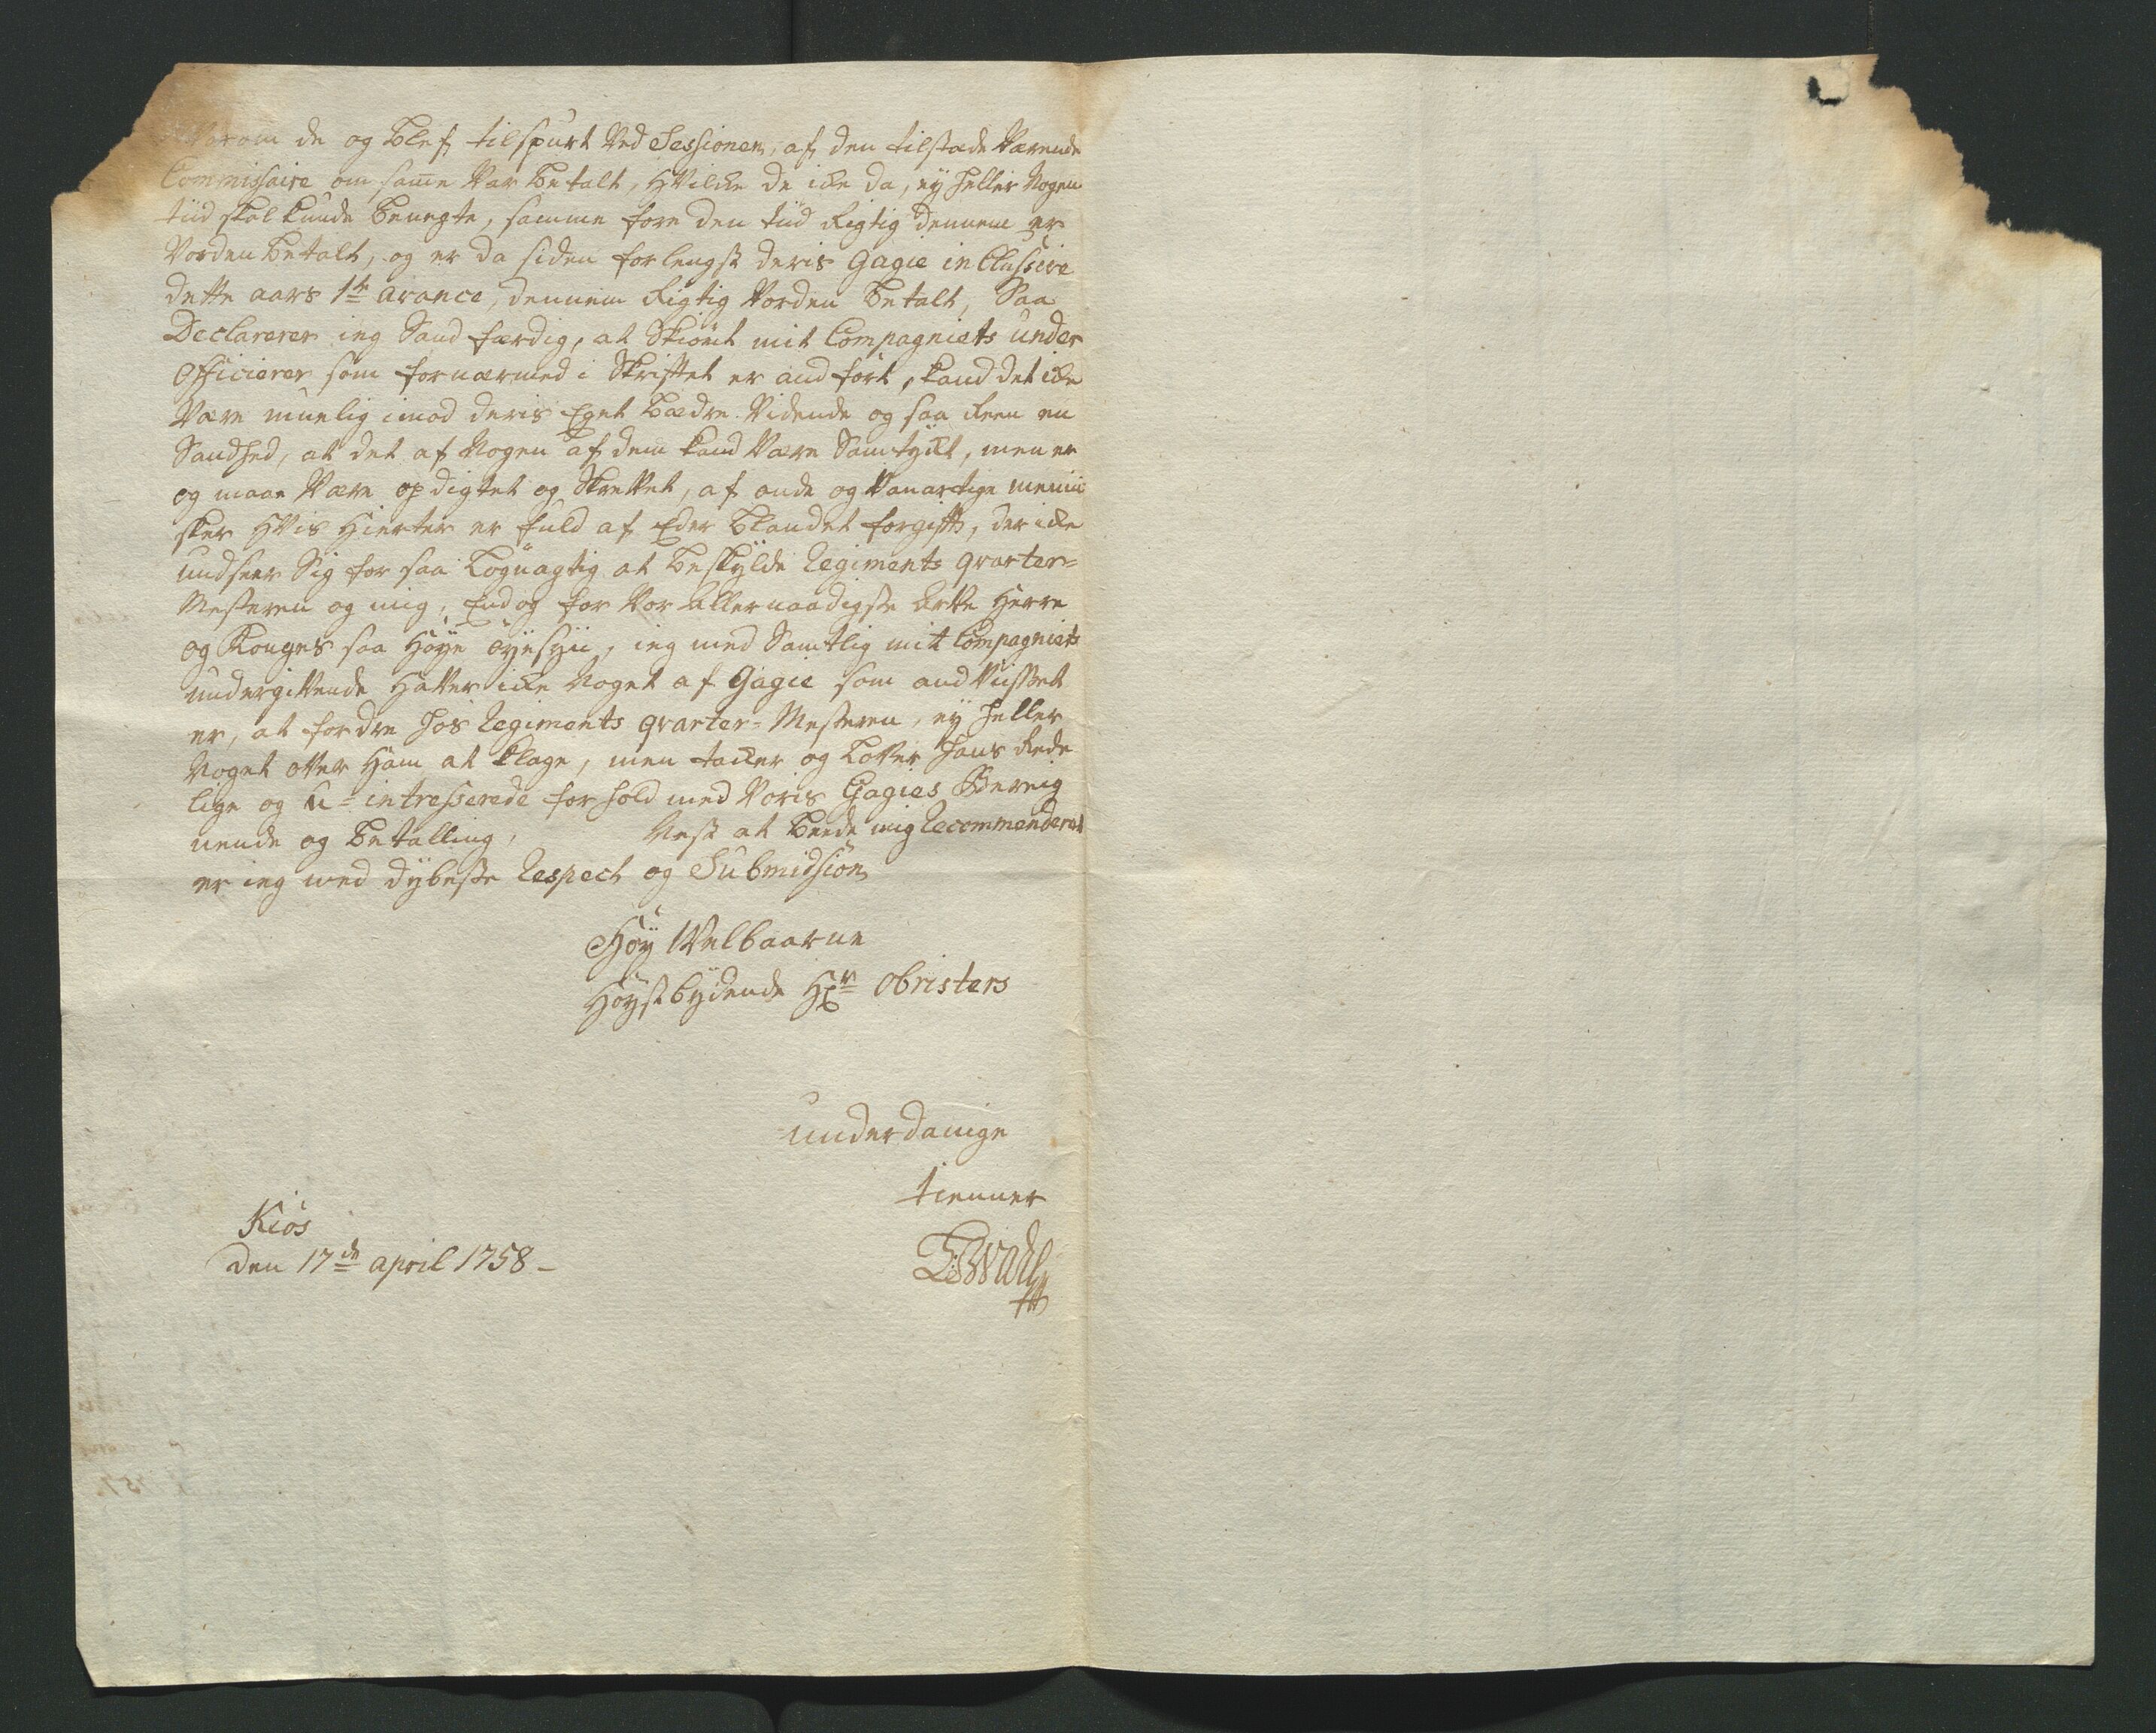 Hvorom de og blef tilspurt ved Sessionen, af den tilstæde værende
Commissaire om samme var betalt, hvilke de icke da, ey heller nogen
tiid skal kunde benegte, samme fore den tiid rigtig dennem er
vorden betalt, og er da siden forlengst deris Gagie inclusive
dette aars 1te avance, dennem rigtig vorden betalt, Saa
Declarerer ieg Sandfærdig, at skiønt mit Compagniets under
Officierer som fornærmed i Skriftet er andført, kand det icke
være muelig imod deris Eget bædre vidende og saa reen en
Sandhed, at det af nogen af dem kand være Samtyckt, men er
og maae være opdigtet og Skrevet, af onde og vanartige menni
sker hvis hierter er fuld af Eder blandet forgift, der icke
undseer Sig for saa løgnagtig at beskylde Regiments qvarter=
Mesteren og mig, End og for vor allernaadigste Arve Herre
og Konges saa høye øyesyn, ieg med Samtlig mit Compagniets
undergivende haver icke noget af Gagie som andviisset
er, at fordre hos Regiments qvarter=Mesteren, ey heller
noget over ham at klage, men tacker og lover hans rede
lige og u=intresserede forhold med voris Gagies Bereig
nende og betalling, Nest at beede mig Recommenderet
er ieg med dybeste Respect og Submidsion
Høy Welbaarne
Høystbydende Hr Obristers
underdanige
tienner
Kiøs
den 17de april 1758 –